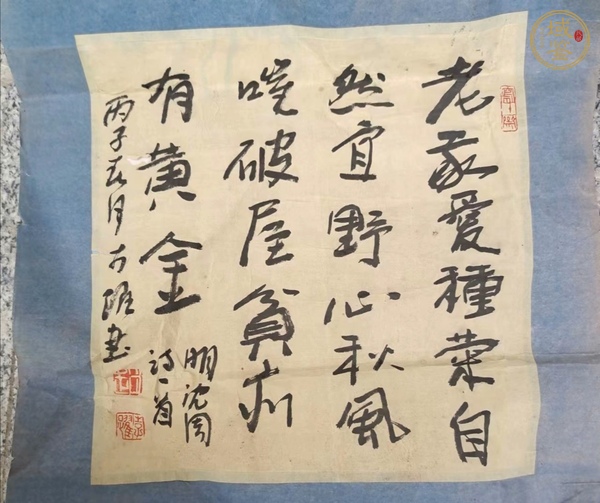 老我愛種菊自
然宜野心秋風
吹破屋貧亦
有黄金
明沈周
诗一首
丙子春月
書